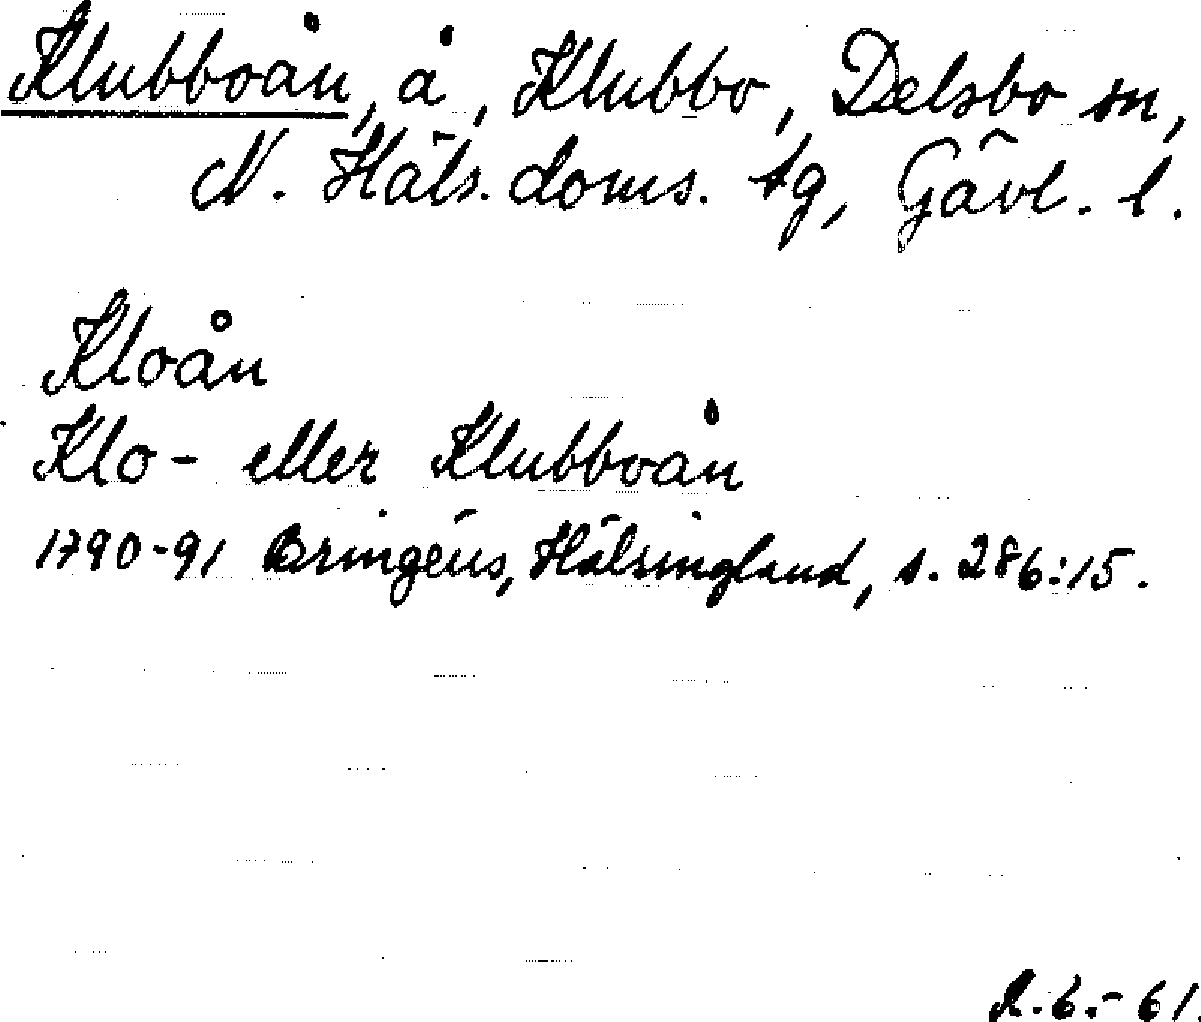 Klubboån, å, Klubbo, Delsbo sn,
N. Häls. doms. tg, Gävl. l.
Kloån
Klo- eller Klubboån
1790-91 Bringéus, Hälsingland, s. 286:15.
R.B.-61.